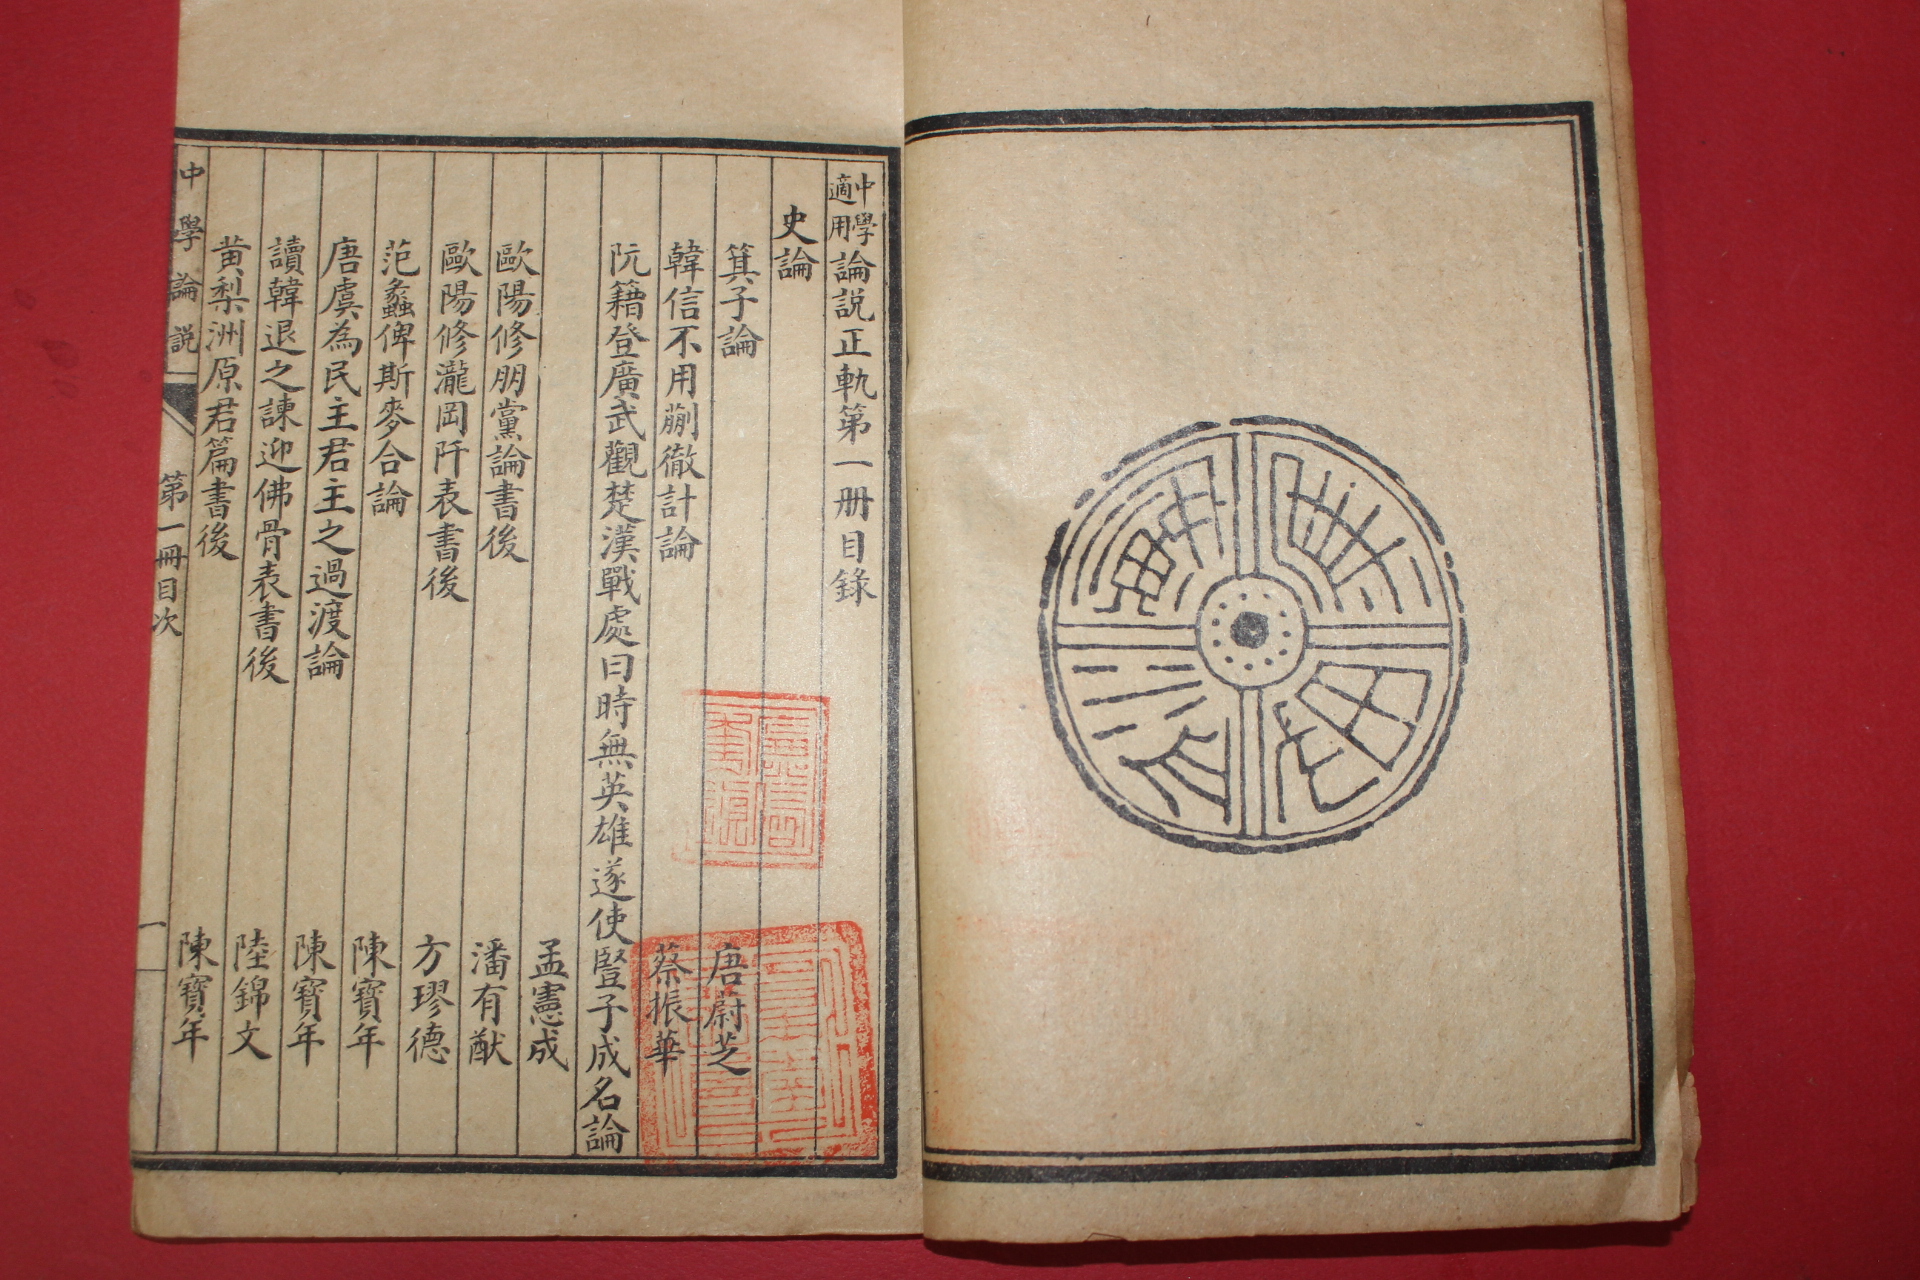 中學適用論說正軌第一册目錄
史論
箕子論 唐蔚芝
韓信不用蒯徹計論 蔡振華
阮籍登廣武觀楚漢戰處曰時無英雄遂使豎子成名論
孟憲成
歐陽修朋黨論書後 潘有猷
歐陽修瀧岡阡表書後 方璆德
范蠡俾斯麥合論 陳寶年
唐虞為民主君主之過渡論 陳寶年
讀韓退之諫迎佛骨表書後 陸錦文
黃梨洲原君篇書後 陳寶年
中學論說 第一冊目次 一